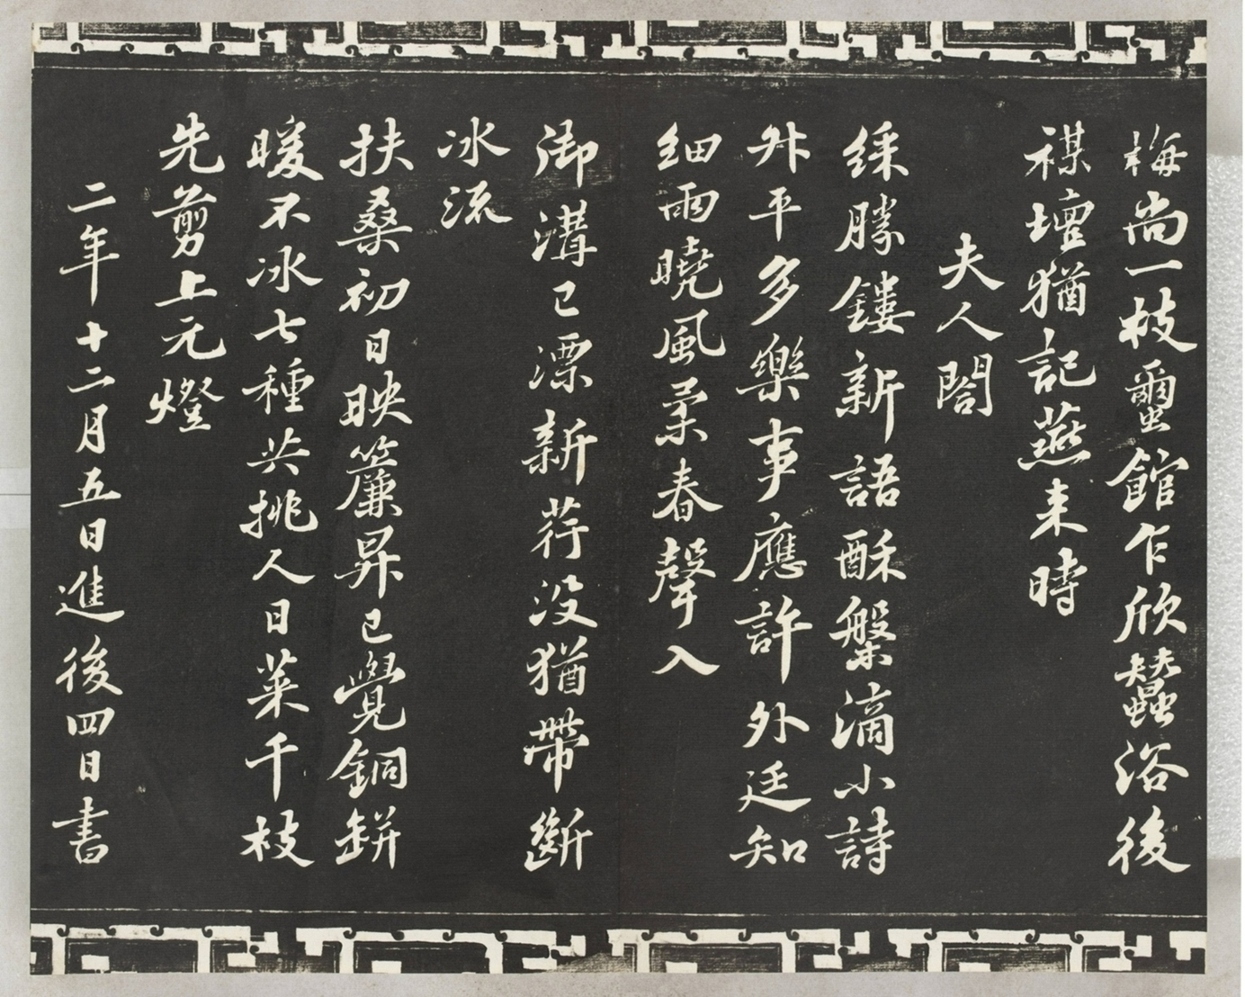 梅尚一枝蠒館乍欣蠶浴後
禖壇猶記燕来時
夫人閤
綵勝鏤新語酥槃滴小詩
外平多樂事應許外廷知
细雨曉風柔春聲入
御溝已漂新荇没猶帶斷
冰流
扶桑初日映簾昇已覺銅鉼
暖不冰七種共挑人日菜千枝
先剪上元燈
二年十二月五日進後四日書